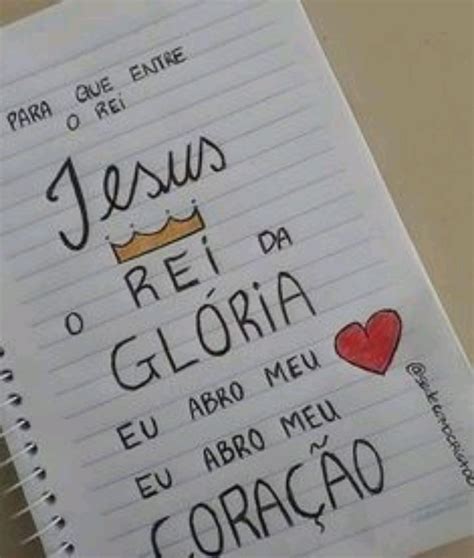 PARA QUE ENTRE
O REI
Jesus
O REI DA
GLÓRIA
EU ABRO MEU
EU ABRO MEU
CORAÇÃO